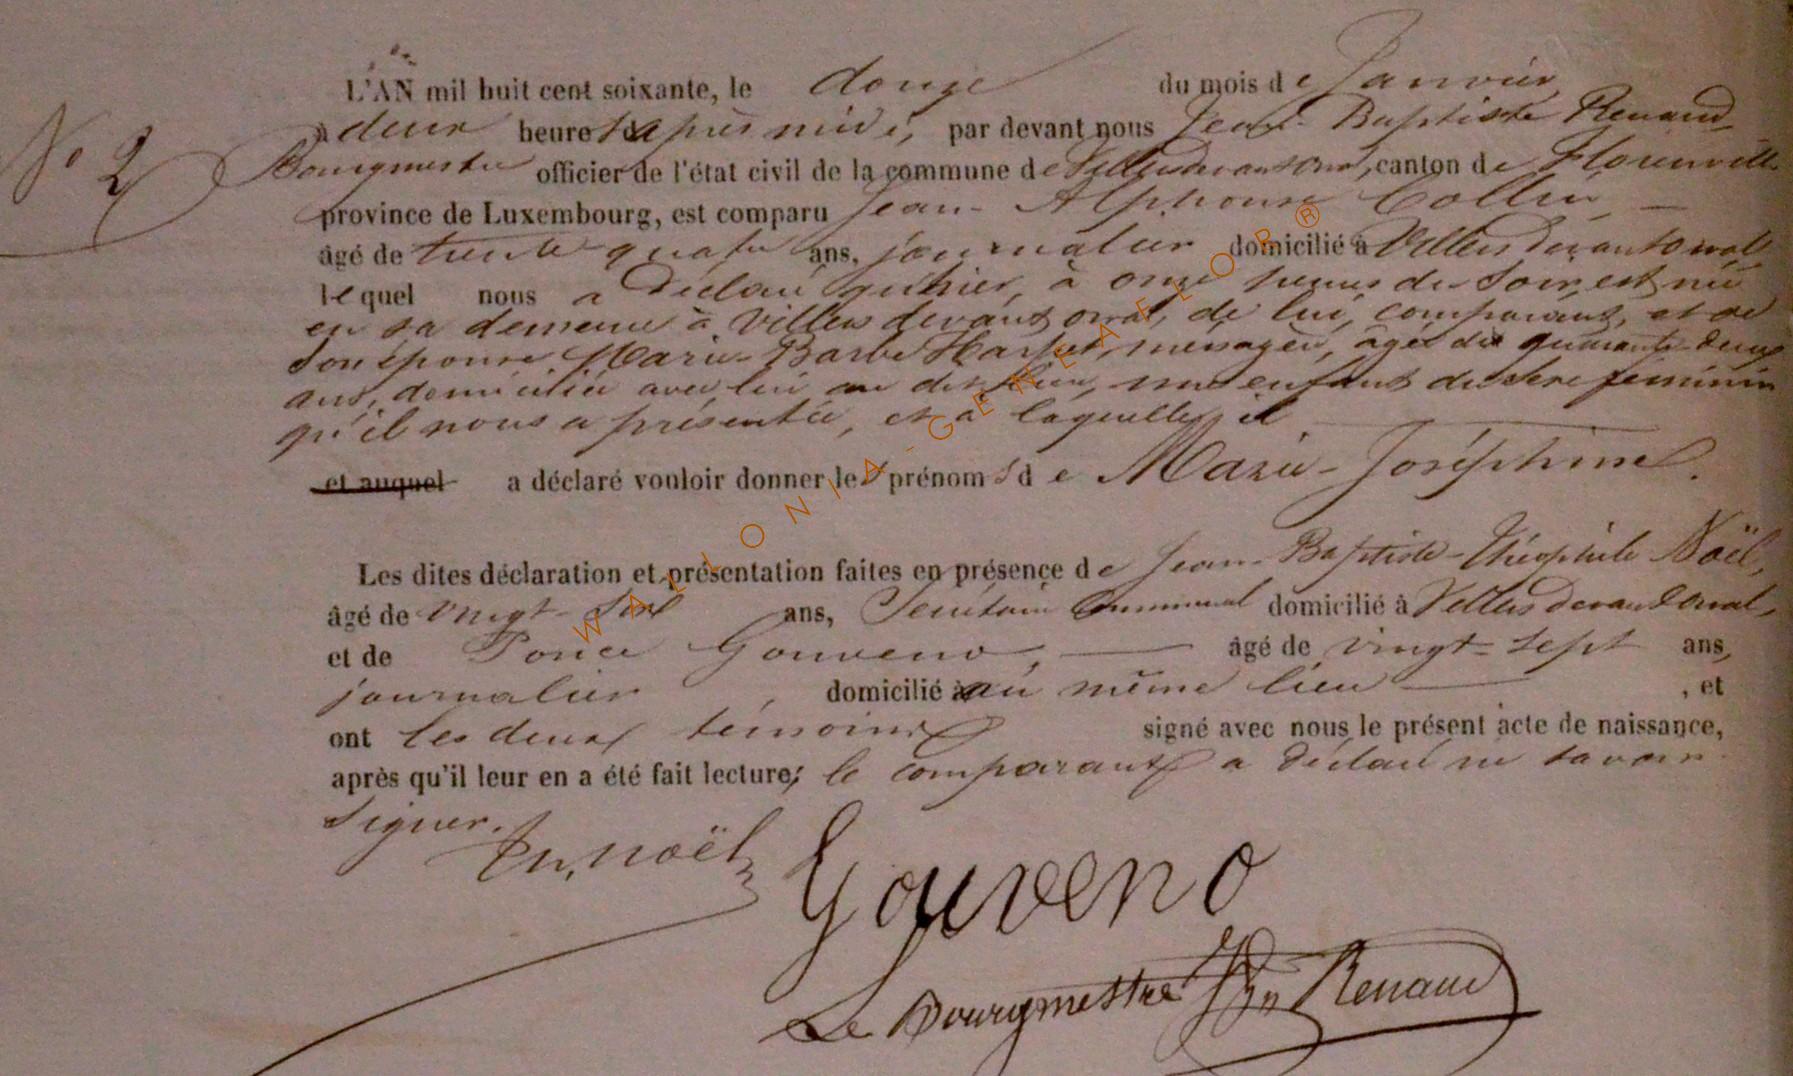 L'AN mil huit cent soixante, le douze du mois de Janvier,
à deux heures d'après midi, par devant nous Jean-Baptiste Renaud
N° 2
Bourgmestre officier de l'état civil de la commune de Villers devant Orval, canton de Florenville
province de Luxembourg, est comparu Jean-Alphonse Collin
âgé de trente-quatre ans, journalier domicilié à Villers devant Orval
lequel nous a déclaré qu'hier, à onze heures du soir, est née
en sa demeure à Villers devant orval, de lui, comparant, et de
son épouse Marie-Barbe, ménagère, âgée de quarante-deux
ans, domiciliée avec lui au dit lieu, une enfant du sexe féminin
qu'il nous a présentée, et à laquelle il
et auquel a déclaré vouloir donner les prénoms de Marie-Joséphine.
Les dites déclaration et présentation faites en présence de Jean-Baptiste-Théophile Noël,
âgé de vingt-six ans, Secrétaire Communal domicilié à Villers devant Orval,
et de Ponce Gouveno, âgé de vingt-sept ans,
journalier, domicilié au même lieu, et
ont les deux témoins signé avec nous le présent acte de naissance,
après qu'il leur en a été fait lecture; le comparant a déclaré ne savoir
signer.
Th. Noël
Gouveno
Le Bourgmestre JBn Renaud
WALLONIA-GENEAFLOR®